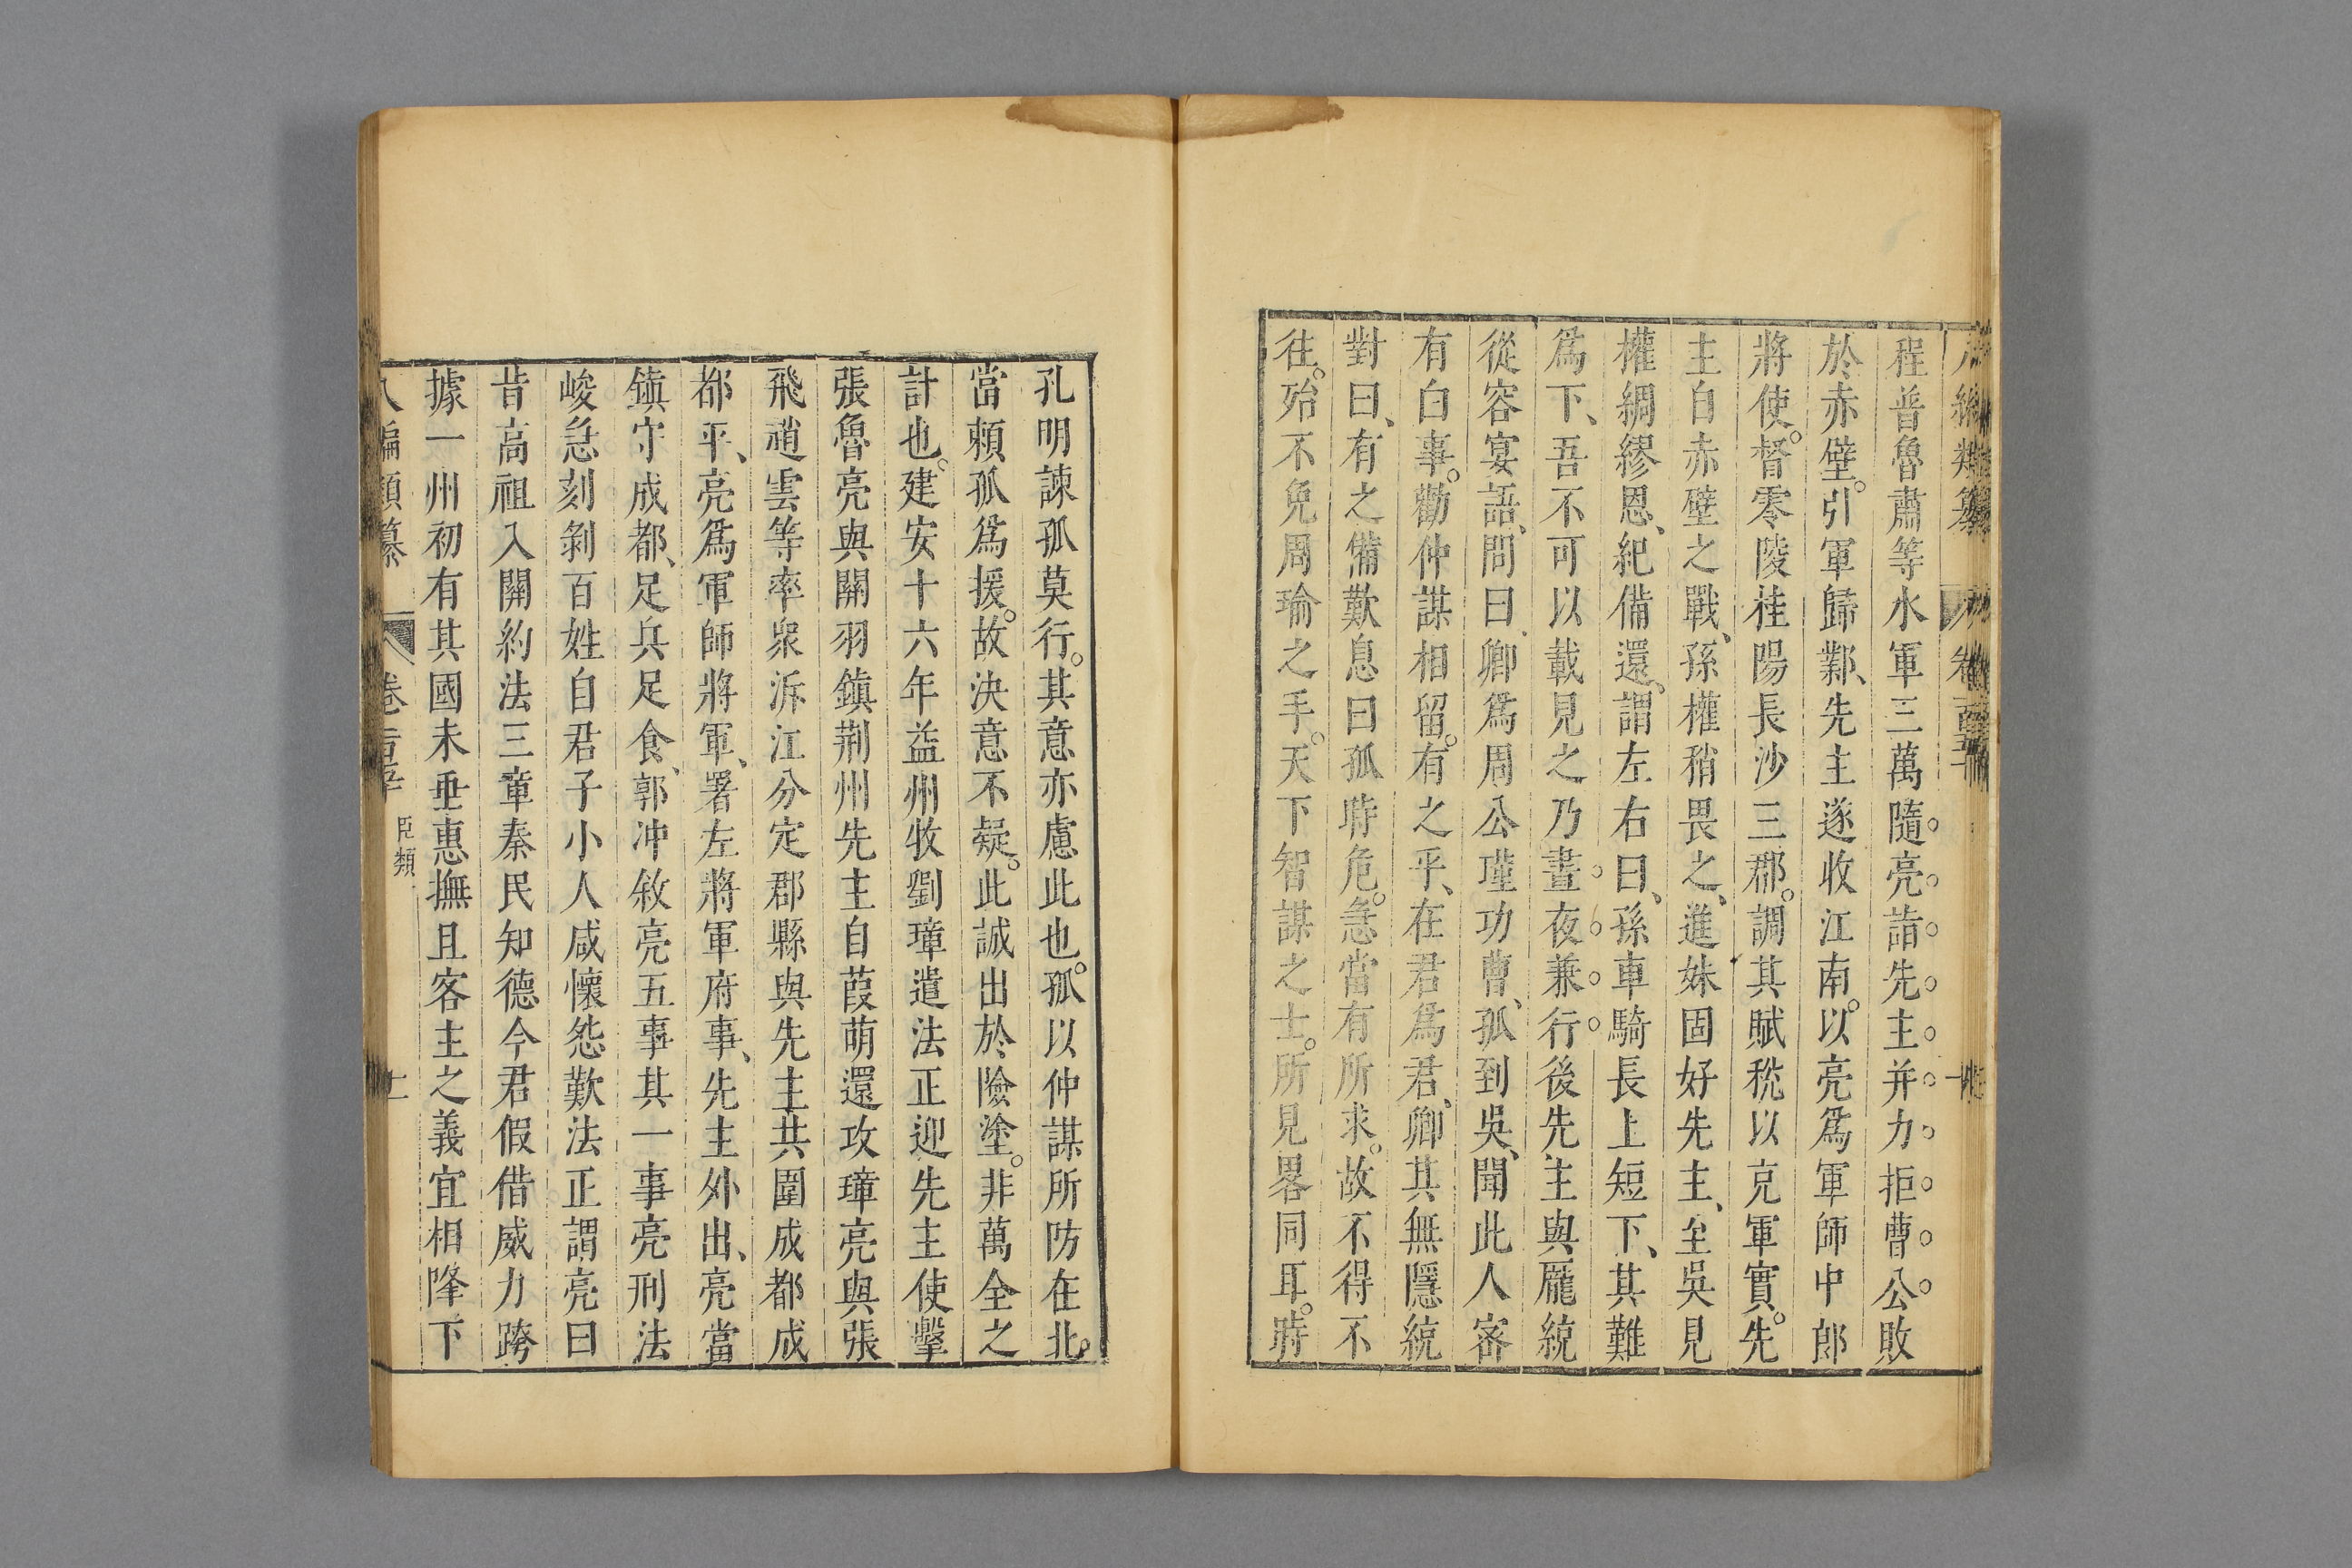 程普魯肅等水軍三萬隨亮詣先主并力拒曹公敗
於赤壁。引軍歸鄴、先主遂收江南。以亮爲軍師中郎
將使。督零陵桂陽長沙三郡。調其賦稅以克軍實。先
主自赤壁之戰、孫權稍畏之、進妹固好先主、至吳見
權綢繆恩、紀備還、謂左右曰、孫車騎長上短下、其難
爲下、吾不可以載見之乃晝夜兼行後先主與龐統
從容宴語、問曰、卿爲周公瑾功曹、孤到吳、聞此人密
有白事。勸仲謀相留。有之乎、在君爲君、卿其無隱統
對曰、有之備歎息曰孤時危。急當有所求。故不得不
往。殆不免周瑜之手。天下智謀之士。所見畧同耳。時
孔明諫孤莫行。其意亦慮此也。孤以仲謀所防在北。
當賴孤爲援。故決意不疑。此誠出於險塗。非萬全之
計也。建安十六年益州牧劉璋遣法正迎先主使擊
張魯亮與關羽鎮荆州先主自葭萌還攻璋亮與張
飛趙雲等率衆泝江分定郡縣與先主共圍成都成
都平、亮爲軍師將軍、署左將軍府事、先主外出、亮當
鎮守成都、足兵足食、郭冲敘亮五事其一事亮刑法
峻急刻剝百姓自君子小人咸懷怨歎法正謂亮曰
昔高祖入關約法三章秦民知德今君假借威力跨
據一州初有其國未垂惠撫且客主之義宜相降下
八編類纂 卷 臣類